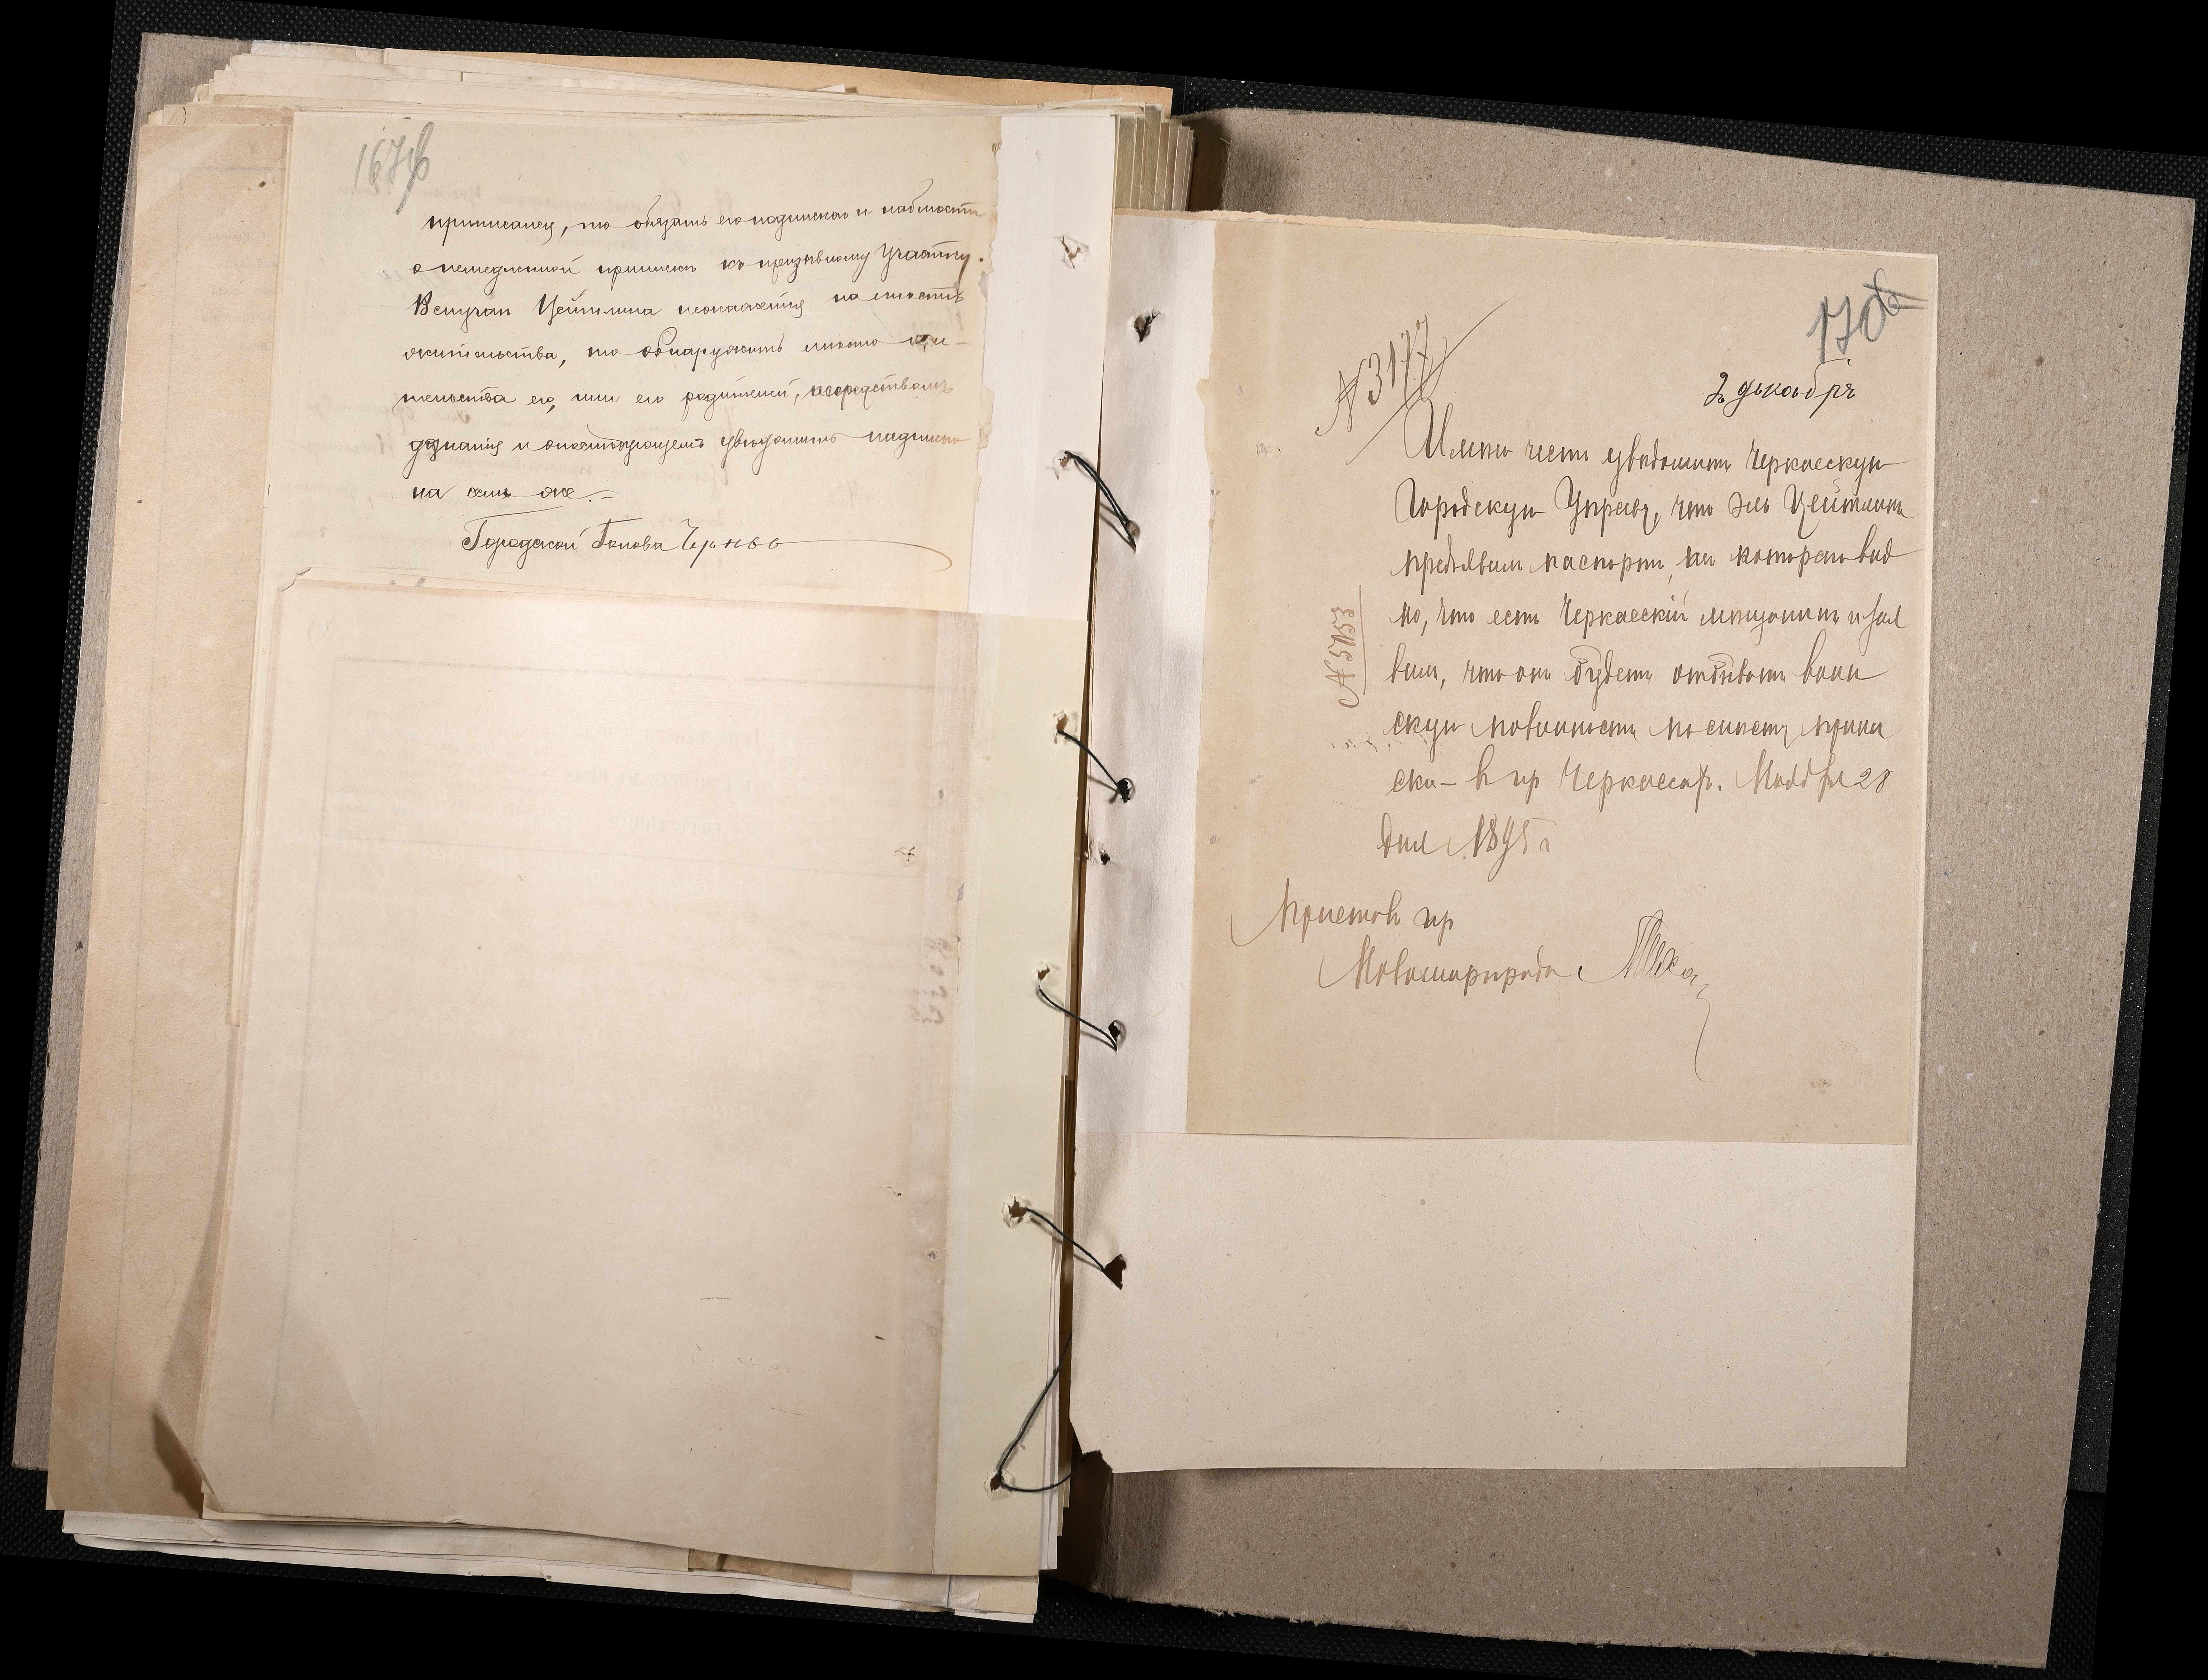 167 об
приписанъ, то обязать его подпискою и наблюсти
о немедленной припискѣ къ призывному участку.
В случаѣ Цейтлина неокажется на мѣстѣ
жительства, то обнаружить мѣсто жи-
тельства его, или его родителей, посредствомъ
дознанія и опослѣдующемъ увѣдомить надписью
на семъ же.
Городской Голова
170
2 декабр
№ 3177
Имѣю честь увѣдомить Черкасскую
Городскую Управу, что Эль Цейтлинъ
предъявилъ паспортъ, изъ котораго вид
но, что есть Черкасскій мѣщанинъ и зая
вилъ, что онъ будетъ отбывать воин
скую повинность по мѣсту припи
ски – в гор Черкассах. Ноября 28
дня 1895 г
№ 5753
Приставъ гор
Новомиргорода